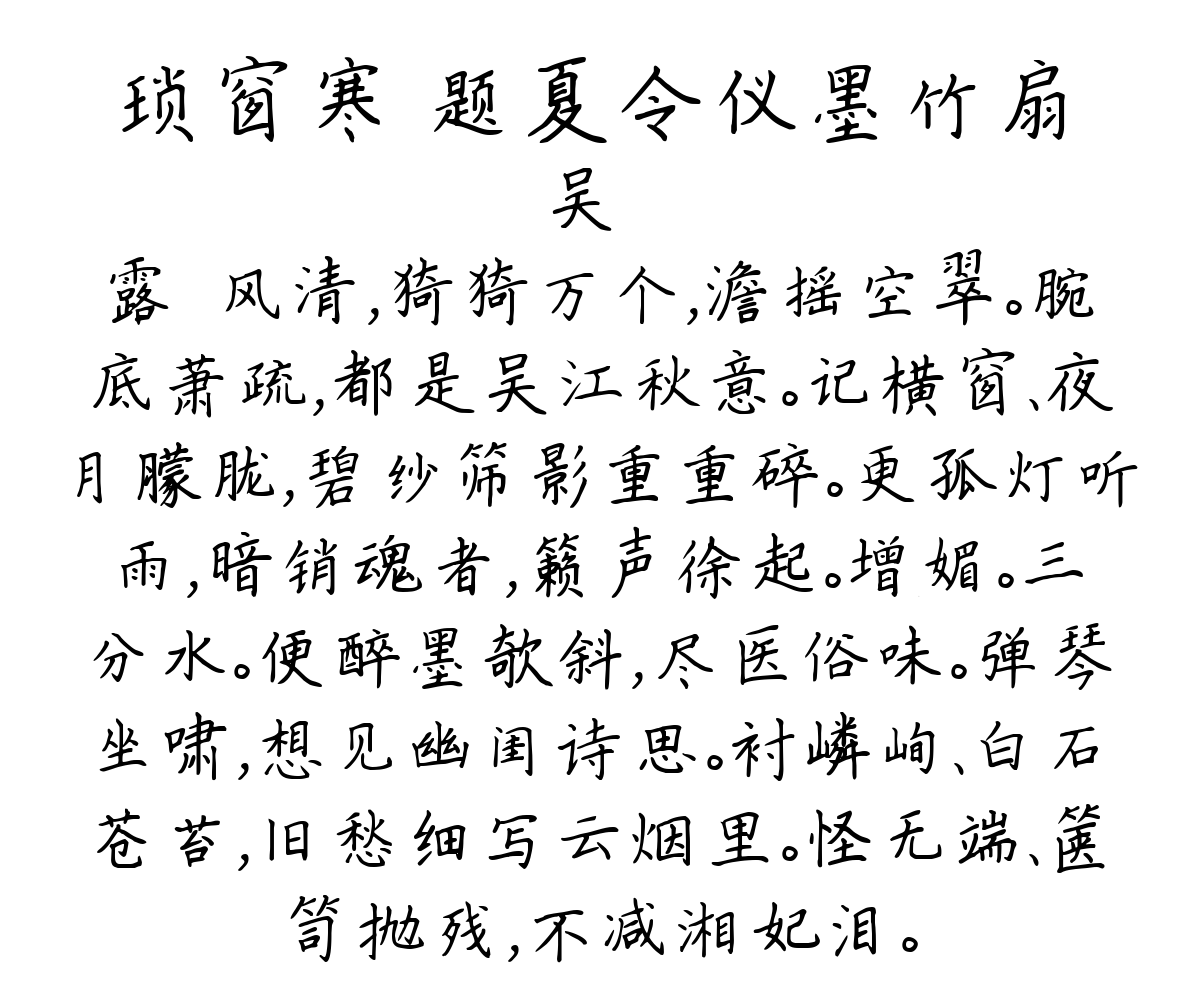 琐窗寒 题夏令仪墨竹扇
吴
露 风清,猗猗万个,澹摇空翠。腕
底萧疏,都是吴江秋意。记横窗、夜
月朦胧,碧纱筛影重重碎。更孤灯听
雨,暗销魂者,籁声徐起。增媚。三
分水。便醉墨欹斜,尽医俗味。弹琴
坐啸,想见幽闺诗思。衬嶙峋、白石
苍苔,旧愁细写云烟里。怪无端、箧
笥抛残,不减湘妃泪。